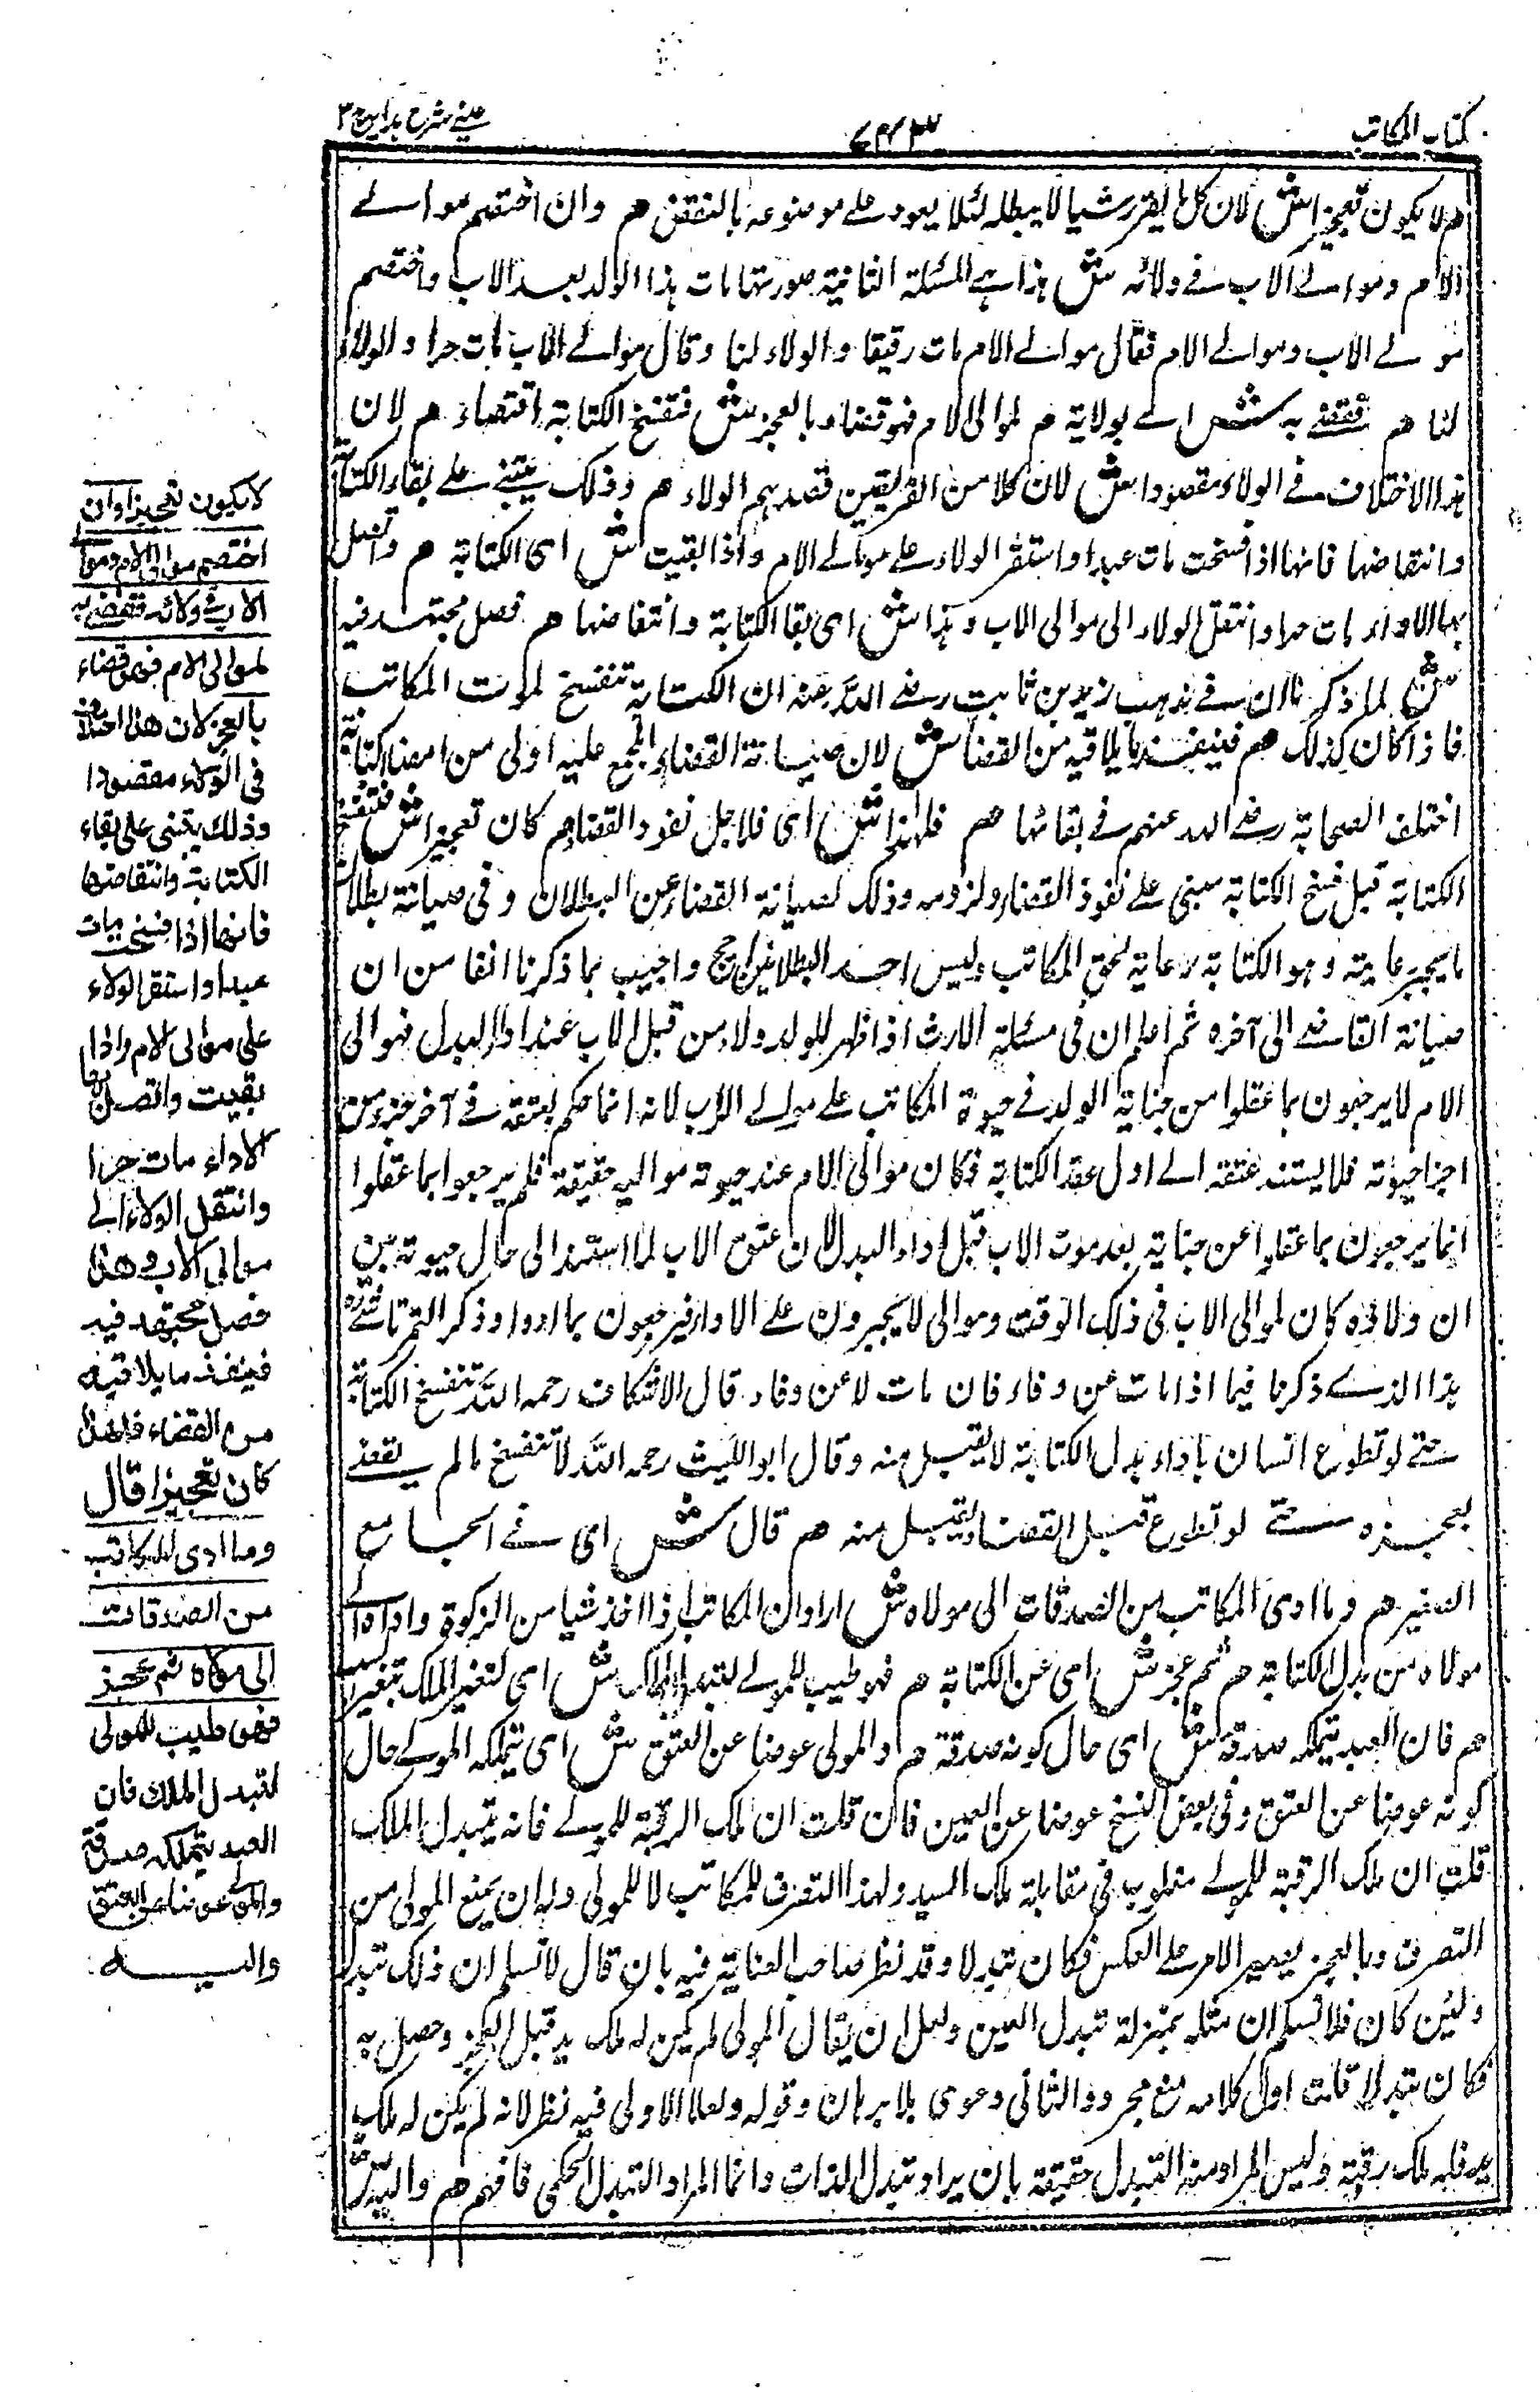 كتاب المكاتب
٧٤٣
عینی شرح ہدایہ ج ٣
م لا يكون تعجيزا ش لان كل ما يقرر شيا لا يبطله لئلا يعود على موضوعه بالنقض م وان اختصم موالى
الام وموالى الاب فى ولائه ش هذا هى المسئلة الثانية صورتها مات هذا الولد بعد الاب واختصم
موالى الاب وموالى الام فقال موالى الام مات رقيقا والولاء لنا وقال موالى الاب مات حرا والولاء
لنا م فقضى به ش اى بولاية م لموالى الام فهو قضاء بالعجز ش فتفسخ الكتابة اقتضاء م لان
هذا الاختلاف فى الولاء مقصودا ش لان كلا من الفريقين قصدهم الولاء م وذلك يبتنى على بقاء الكتابة
وانتقاضها فانها اذا فسخت مات عبدا واستقر الولاء على موالى الام واذا بقيت ش اى الكتابة م واتصل
بها الاداء مات حرا وانتقل الولاء الى موالى الاب وهذا ش اى بقا الكتابة وانتقاضها م فصل مجتهد فيه
ش لما ذكرنا ان فى مذهب زيد بن ثابت رضى الله عنه ان الكتابة تنفسخ لموت المكاتب
فاذا كان كذلك م فينفذ ما يلاقيه من القضا ش لان صيانة القضاء المجمع عليه اولى من امضا كتابة
اختلف الصحابة رضى الله عنهم فى بقائها م فلهذا ش اى فلاجل نفوذ القضا م كان تعجيزا ش فتفسخ
الكتابة قبل فسخ الكتابة مبنى على نفوذ القضاء ولزومه وذلك لصيانة القضاء عن البطلان وفى صيانته بطلان
ما يجب رعايته وهو الكتابة رعاية لحق المكاتب وليس احد البطلانين ارجح واجيب بما ذكرنا انفا من ان
صيانة القاضى الى آخره ثم اعلم ان فى مسئلة الارث اذا ظهر للولد ولاء من قبل الاب عند اداء البدل فموالى
الام لا يرجعون بما عقلوا من جناية الولد فى حيوة المكاتب على موالى الاب لانه انما حكم بعتقه فى آخر جزء من
اجزا حيوته فلا يستند عتقه الى اول عقد الكتابة فكان موالى الام عند حيوته مواليه حقيقة فلم يرجعوا بما عقلوا
انما يرجعون بما عقلوا عن جنايته بعد موت الاب قبل اداء البدل لان عتق الاب لما استند الى حال حيوته تبين
ان ولاؤه كان لموالى الاب فى ذلك الوقت وموالى لا يجبرون على الاداء فيرجعون بما ادوا وذكر التمرتاشى
هذا الذى ذكرنا فيما اذا مات عن وفاء فان مات لا عن وفاء قال الاسكاف رحمه الله تنفسخ الكتابة
حتى لو تطوع انسان باداء بدل الكتابة لا يقبل منه وقال ابو الليث رحمه الله لا تنفسخ ما لم يقض
بعجزه حتى لو تطوع قبل القضاء يقبل منه م قال ش اى فى الجامع
الصغير م وما ادى المكاتب من الصدقات الى مولاه ش اراد ان المكاتب اذا اخذ شيا من الزكوة واداه الى
مولاه من بدل الكتابة م ثم عجز ش اى عن الكتابة م فهو طيب للمولى لتبدل الملك ش اى لتغير الملك بتغير السبب
م فان العبد يتملكه صدقة ش اى حال كونه صدقة م والمولى عوضا عن العتق ش اى يتملكه المولى حال
كونه عوضا عن العتق وفى بعض النسخ عوضا عن العين فان قلت ان ملك الرقبة للمولى فانه يتبدل الملك
قلت ان ملك الرقبة للمولى مغلوب فى مقابلة ملك اليد ولهذا التصرف للمكاتب لا للمولى وله ان يمنع المولى من
التصرف وبالعجز يصير الامر على العكس فكان تبدلا وقد نظر صاحب العناية فيه بان قال لا نسلم ان ذلك تبدل
ولئين كان فلا نسلم ان مثله بمنزلة تبدل العين ولعل ان يقال المولى لم يكن له ملك يد قبل العجز وحصل به
فكان تبدلا قلت اول كلامه منع مجرد والثانى دعوى بلا برهان وقوله ولعل الاولى فيه نظر لانه لم يكن له ملك
يد فله ملك رقبة وليس المراد منه التبدل حقيقة بان يراد تبدل الذات وانما المراد التبدل الحكمى فافهم م واليه
لا يكون تعجيزا وان
اختصم موالى الام وموالى
الاب فى ولائه فقضى به
لموالى الام فهو قضاء
بالعجز لان هذا اختلاف
فى الولاء مقصودا
وذلك يبتنى على بقاء
الكتابة وانتقاضها
فانها اذا فسخت مات
عبدا واستقر الولاء
على موالى الام واذا
بقيت واتصل بها
الاداء مات حرا
وانتقل الولاء الى
موالى الاب وهذا
فصل مجتهد فيه
فينفذ ما يلاقيه
من القضاء فلهذا
كان تعجيزا قال
وما ادى المكاتب
من الصدقات
الى مولاه ثم عجز
فهو طيب للمولى
لتبدل الملك فان
العبد يتملكه صدقة
والمولى عوضا عن العتق
واليه